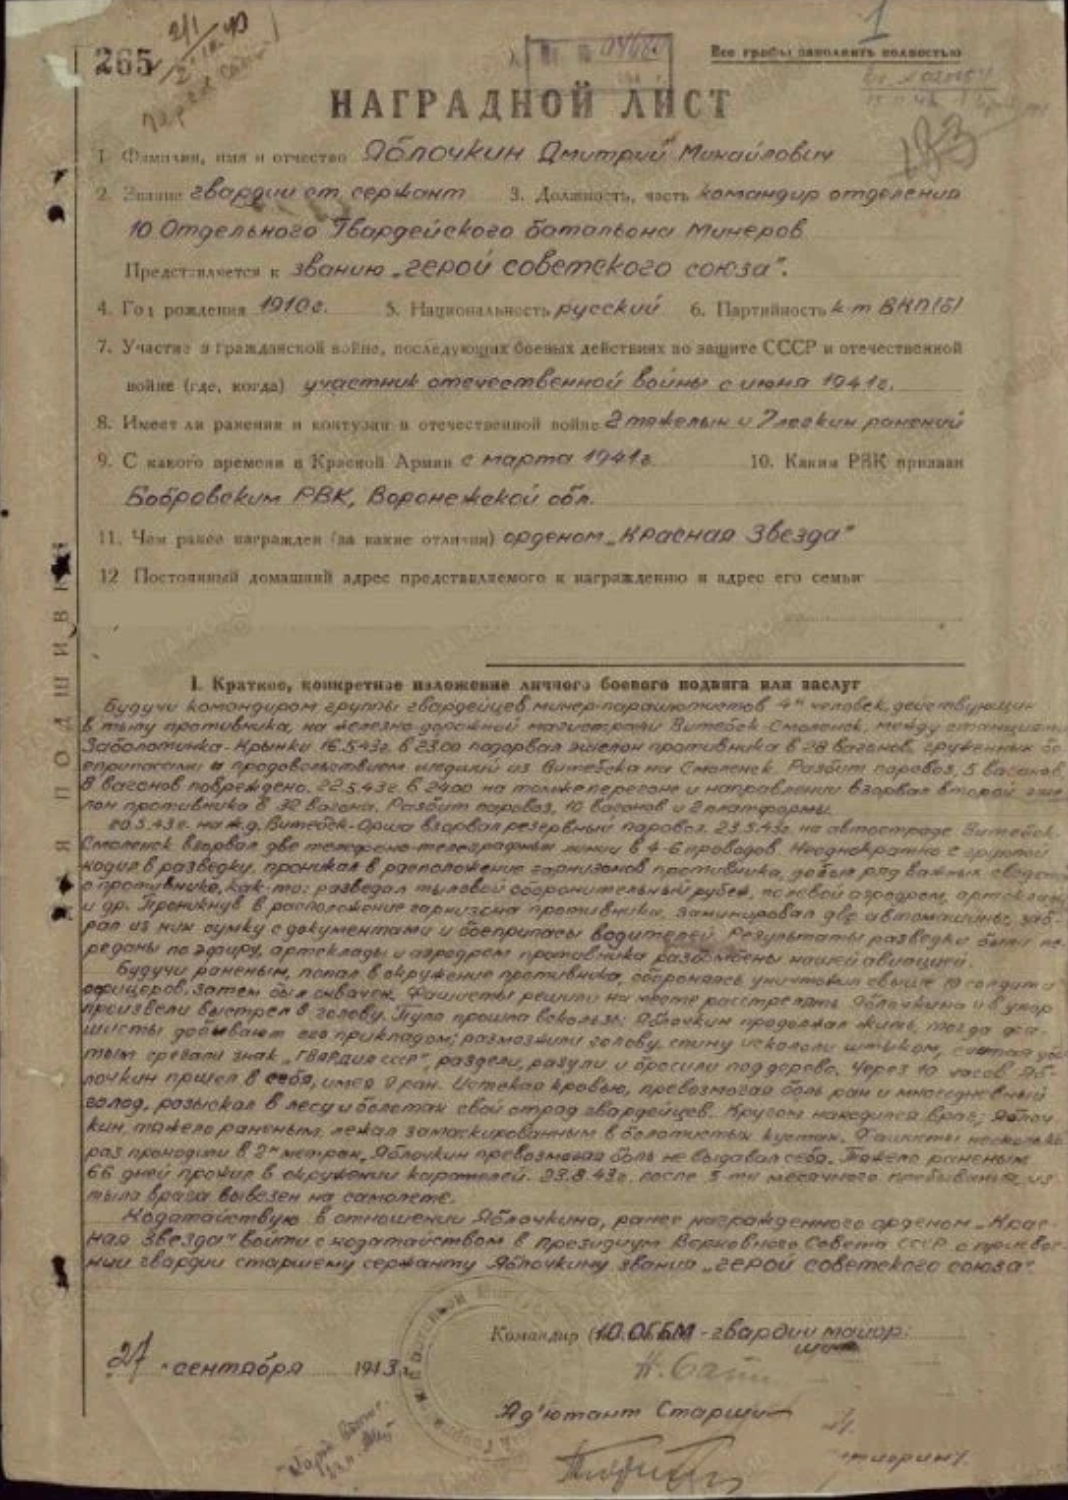 265
1
Все графы заполнять полностью
НАГРАДНОЙ ЛИСТ
1. Фамилия, имя и отчество Яблочкин Дмитрий Михайлович
2. Звание гвардии ст. сержант 3. Должность, часть командир отделения
10 Отдельного Гвардейского батальона Минеров
Представляется к званию „герой советского союза".
4. Год рождения 1910г. 5. Национальность русский 6. Партийность к-т ВКП(б)
7. Участие в гражданской войне, последующих боевых действиях по защите СССР и отечественной
войне (где, когда) участник отечественной войны с июня 1941г.
8. Имеет ли ранения и контузии в отечественной войне 2 тяжелых и 7 легких ранений
9. С какого времени в Красной Армии с марта 1941г. 10. Каким РВК призван
Бобровским РВК, Воронежской обл.
11. Чем ранее награжден (за какие отличия) орденом „Красная Звезда"
12 Постоянный домашний адрес представляемого к награждению и адрес его семьи
ДЛЯ ПОДШИВКИ
I. Краткое, конкретное изложение личного боевого подвига или заслуг
Будучи командиром группы гвардейцев минер-парашютистов 4х человек, действующих
в тылу противника, на железно-дорожной магистрали Витебск-Смоленск, между станциями
Заболотинка-Крынки 16.5.43г. в 23.00 подорвал эшелон противника в 28 вагонов, груженных бо-
еприпасами и продовольствием шедший из Витебска на Смоленск. Разбит паровоз, 5 вагонов,
8 вагонов повреждено. 22.5.43г. в 24.00 на том же перегоне и направлении взорвал второй эше-
лон противника в 32 вагона. Разбит паровоз, 10 вагонов и 2 платформы.
20.5.43г. на ж.д. Витебск-Орша взорвал резервный паровоз. 23.5.43г. на автостраде Витебск-
Смоленск взорвал две телефоно-телеграфных линии в 4-6 проводов. Неоднократно с группой
ходил в разведку, проникал в расположение гарнизонов противника, добыл ряд важных сведений
о противнике, как-то: разведал тыловой оборонительный рубеж, полевой аэродром, артсклады
и др. Проникнув в расположение гарнизона противника, заминировал две автомашины, заб-
рал из них сумку с документами и боеприпасы водителей. Результаты разведки были пе-
реданы по эфиру, артсклады и аэродром противника разбомбены нашей авиацией.
Будучи раненым, попал в окружение противника, обороняясь уничтожил свыше 10 солдат и
офицеров. Затем был схвачен. Фашисты решили на месте расстрелять Яблочкина и в упор
произвели выстрел в голову. Пуля прошла вскользь; Яблочкин продолжал жить, тогда фа-
шисты добивают его прикладом; размозжили голову, спину искололи штыком, считая уби-
тым срезали знак „ГВАРДИЯ СССР", раздели, разули и бросили под дерево. Через 10 часов Яб-
лочкин пришел в себя, имея 9 ран. Истекая кровью, превозмогая боль ран и многодневный
голод, разыскал в лесу и болотах свой отряд гвардейцев. Кругом находился враг; Яблоч-
кин, тяжело раненым, лежал замаскированным в болотистых кустах. Фашисты несколько
раз проходили в 2х метрах, Яблочкин превозмогая боль не выдавал себя. Тяжело раненым
66 дней прожил в окружении карателей. 23.8.43г. после 5-ти месячного пребывания из
тыла врага вывезен на самолете.
Ходатайствую в отношении Яблочкина, ранее награжденного орденом „Крас-
ная Звезда" войти с ходатайством в президиум Верховного Совета СССР о присвое-
нии гвардии старшему сержанту Яблочкину звания „герой советского союза".
Командир 10.ОГБМ - гвардии майор:
27 сентября 1943
Ад'ютант Старший